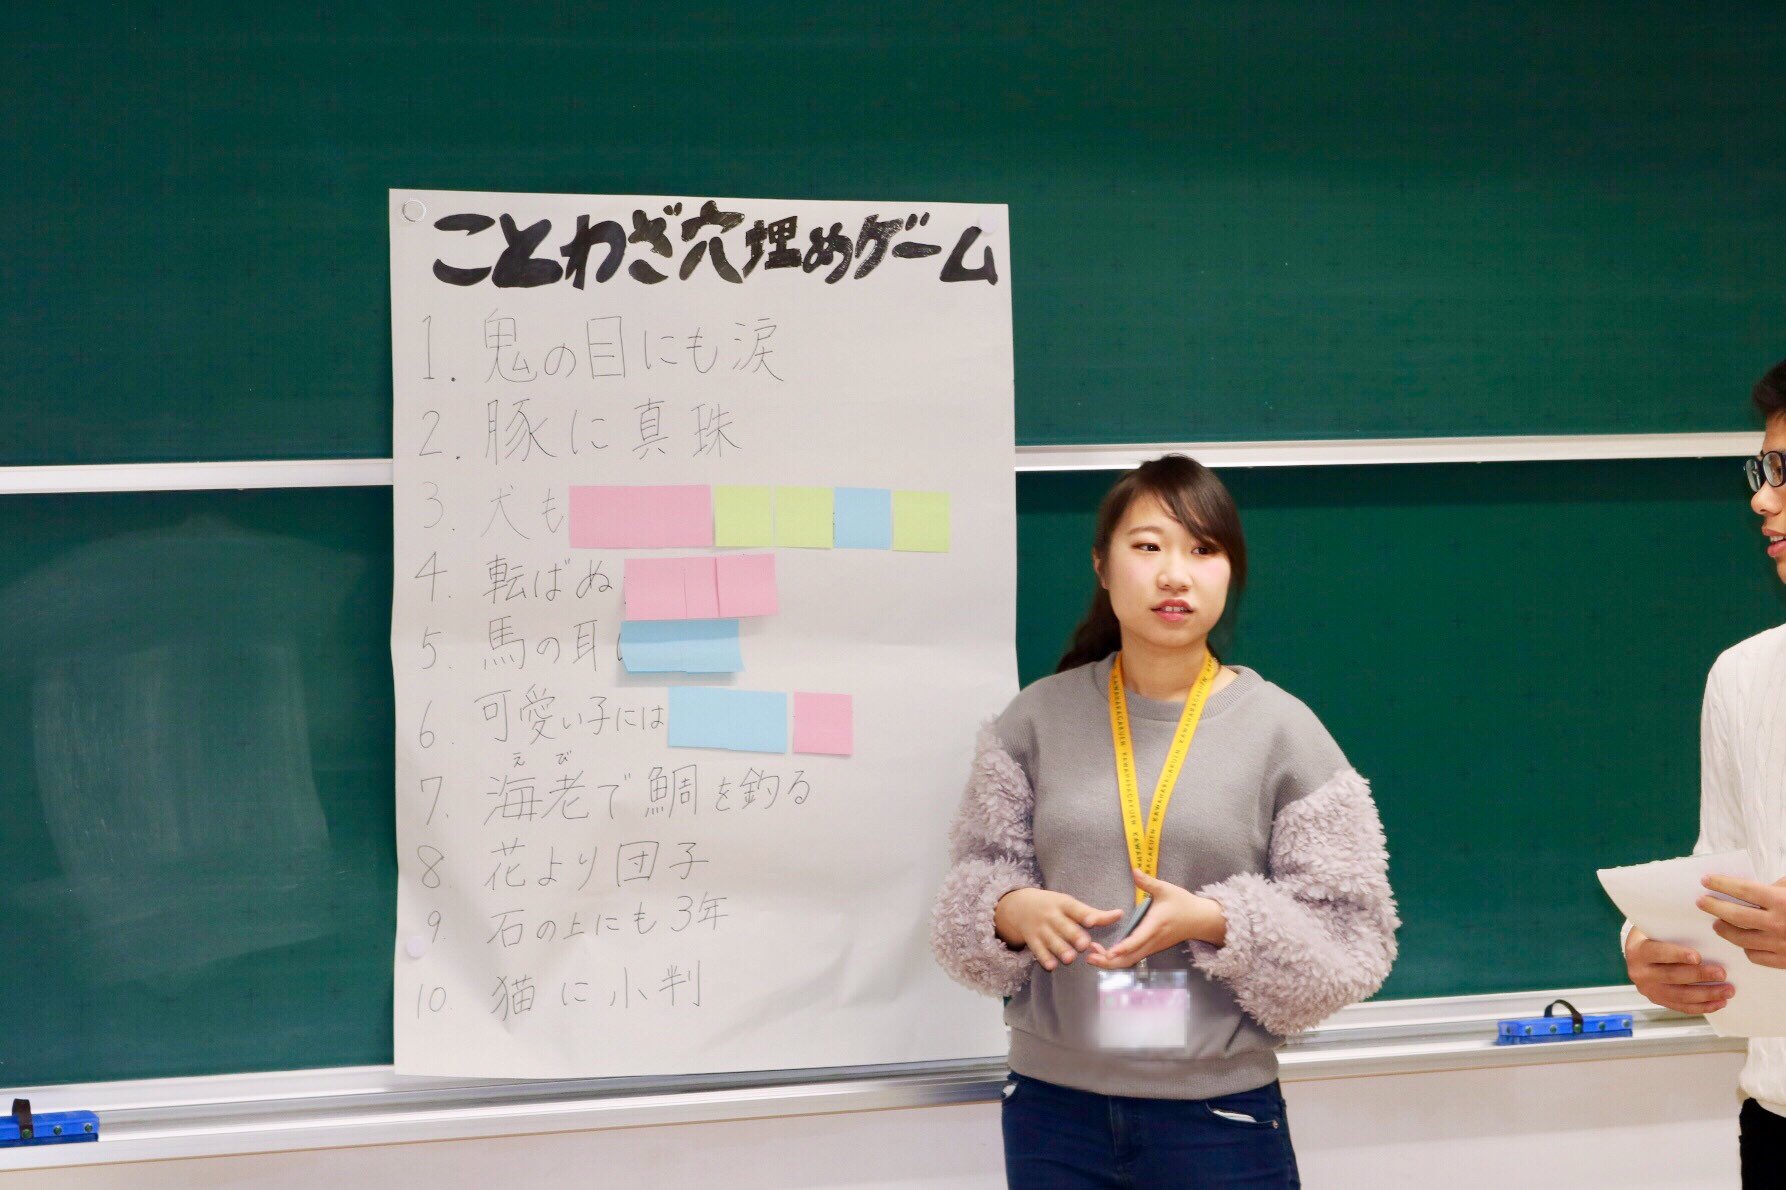 ことわざ穴埋めゲーム
1. 鬼の目にも涙
2. 豚に真珠
3. 犬も
4. 転ばぬ
5. 馬の耳
6. 可愛い子には
えび
7. 海老で鯛を釣る
8. 花より団子
9. 石の上にも3年
10. 猫に小判
KAWAHARAGAKUEN KAWAHARAGAKUEN